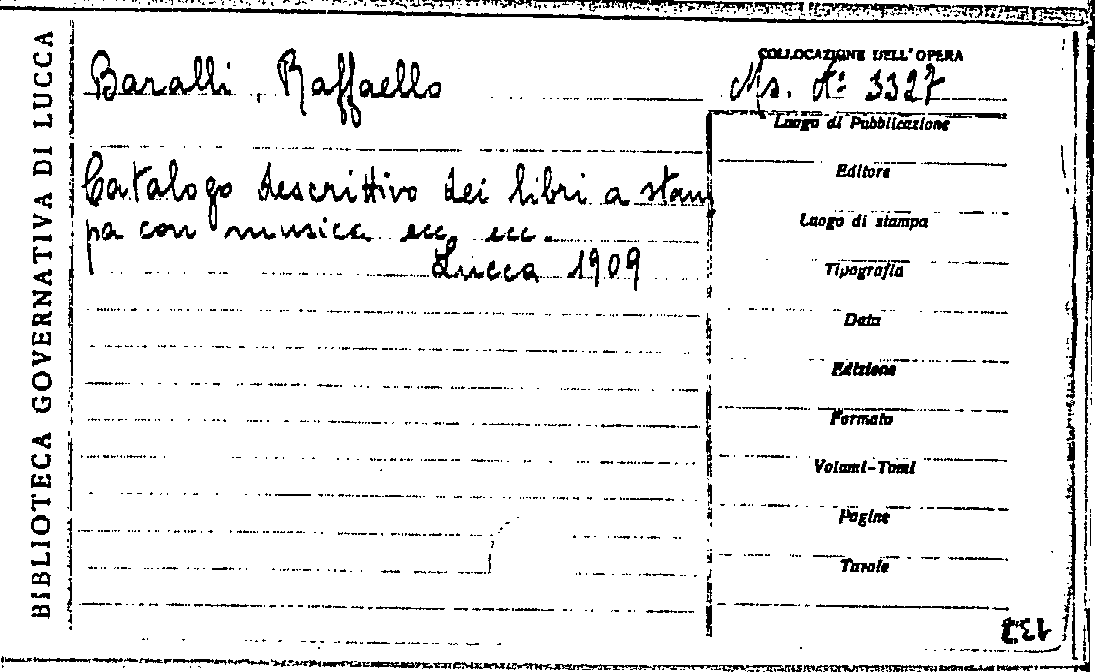 BIBLIOTECA GOVERNATIVA DI LUCCA
Baralli, Raffaello
Catalogo descrittivo dei libri a stam
pa con musica ecc. ecc.
Lucca 1909
COLLOCAZIONE DELL'OPERA
Ms. N° 3327
Luogo di Pubblicazione
Editore
Luogo di stampa
Tipografia
Data
Edizione
Formato
Volumi-Tomi
Pagine
Tavole